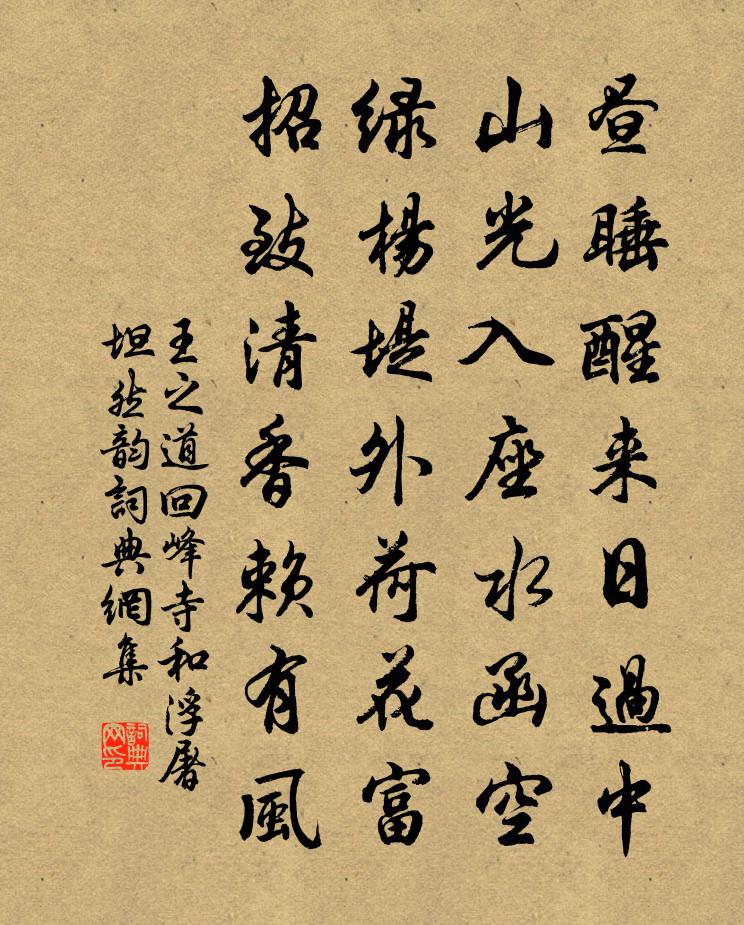 昼睡醒来日過中
山光入座水函空
緑楊堤外荷花富
招致清香頼有風
王之道回峰寺和浮屠
坦然韵詞典網集
詞典网印